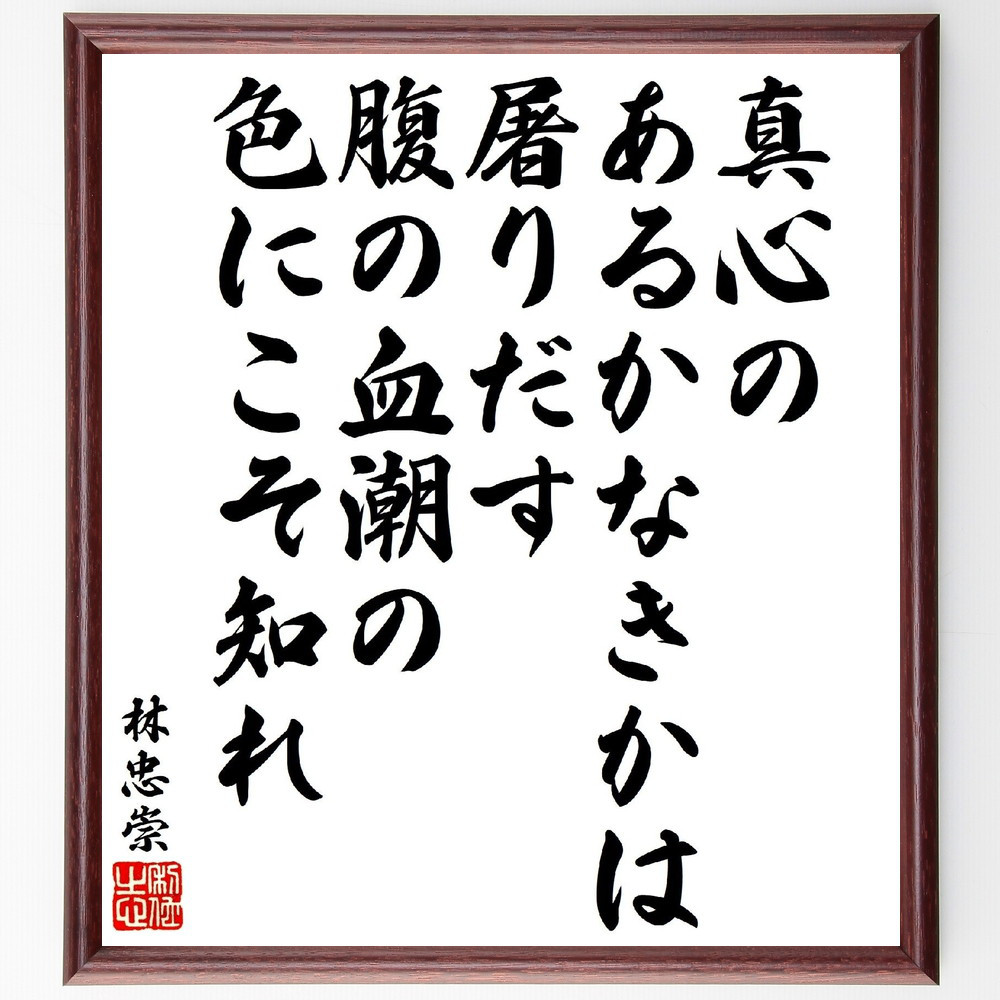 真心の
あるかなきかは
屠りだす
腹の血潮の
色にこそ知れ
林忠崇